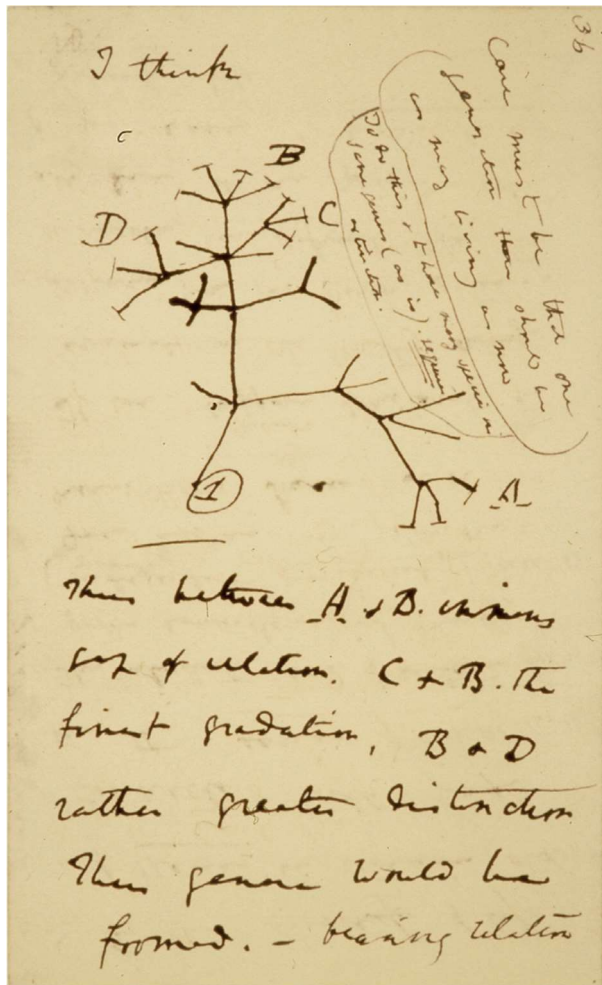 36
I think
Case must be that one
generation then should be
as many living as now
To do this & to have many species in
same genus (as is). requires
extinction.
B
C
D
A
1
Thus between A & B. immens
gap of relation. C & B. the
finest gradation, B & D
rather greater distinction
Thus genera would be
formed. — bearing relation